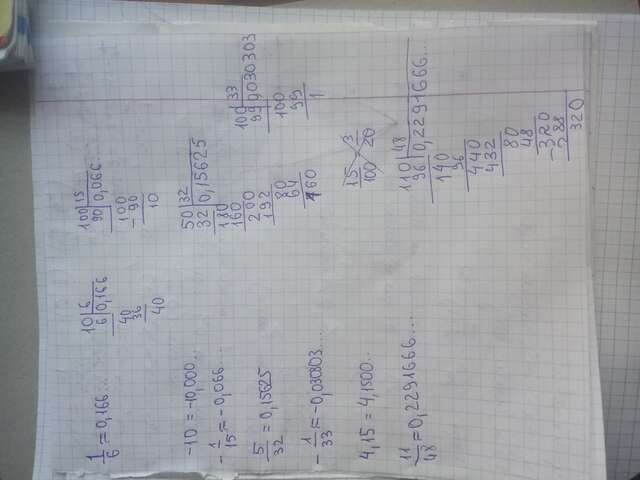 1/6 ≈ 0,166...
10 | 6
6 | 0,166
40
36
40
100 | 15
90 | 0,066...
-100
90
10
-10 = -10,000...
-1/15 ≈ -0,066....
5/32 = 0,15625
50 | 32
32 | 0,15625
180
160
200
192
80
64
160
-1/33 ≈ -0,030303....
100 | 33
99 | 0,030303
100
99
1
4,15 = 4,1500...
15/100 3/20
11/48 ≈ 0,2291666....
110 | 48
96 | 0,2291666...
140
96
440
432
80
48
-320
288
320